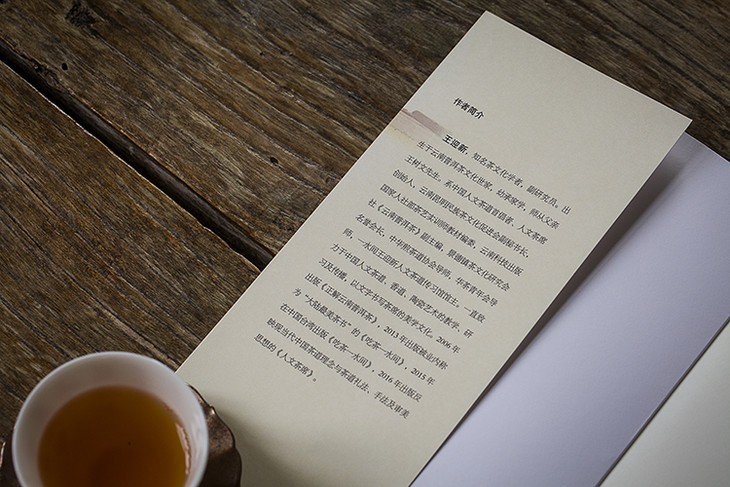 作者简介
王迎新，知名茶文化学者，副研究员，出
生于云南普洱茶文化世家，幼承家学，师从父亲
王树文先生。系中国人文茶道首倡者，人文茶席
创始人，云南昆明民族茶文化促进会副秘书长，
国家人社部茶艺实训师教材编委，云南科技出版
社《云南普洱茶》副主编，景德镇茶文化研究会
名誉会长，中华煎茶道协会导师，华茶青年会导
师，一水间王迎新人文茶道传习馆馆主。一直致
力于中国人文茶道、香道、陶瓷艺术的教学、研
习及传播，以文字书写茶席的美学文化。2006年
出版《正解云南普洱茶》，2013年出版被业内称
为“大陆最美茶书”的《吃茶一水间》，2015年
在中国台湾出版《吃茶一水间》，2016年出版反
映现当代中国茶道理念与茶道礼法、手法及审美
思想的《人文茶席》。